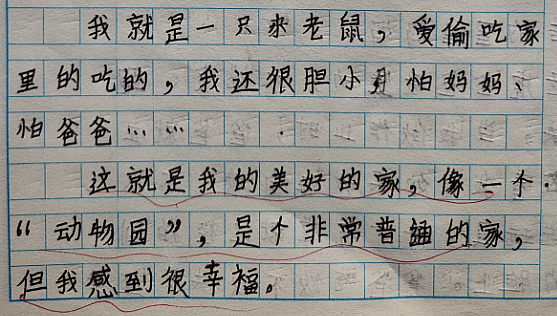 我就是一只米老鼠，爱偷吃家
里的吃的，我还很胆小，怕妈妈、
怕爸爸……
这就是我的美好的家，像一个
“动物园”，是个非常普通的家，
但我感到很幸福。